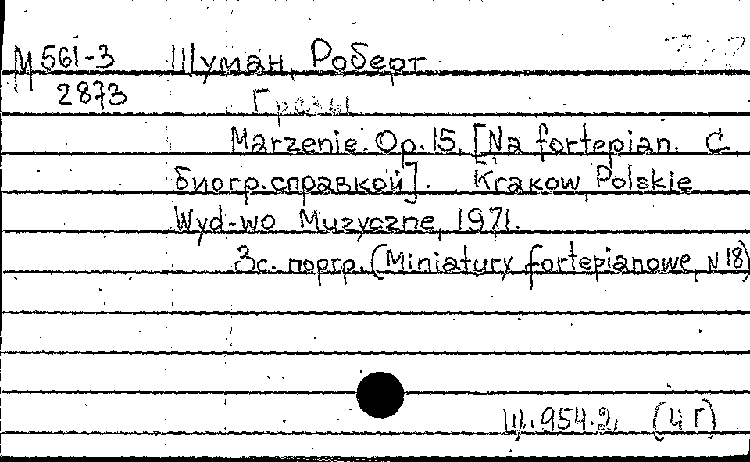 М 561-3 Шуман, Роберт
2873 Грезы
Marzenie. Op. 15. [Na fortepian. С
биогр. справкой]. Krakow, Polskie
Wyd-wo Muzyczne, 1971.
3с. портр. (Miniatury fortepianowe, N 18)
Ш.954.2 (4 Г)